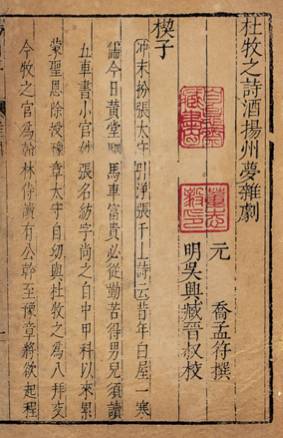 杜牧之詩酒揚州夢雜劇
元 喬孟符撰
明吳興臧晉叔校
楔子
冲末扮張太守引淨張千上詩云昔年白屋一寒
儒今日黃堂駟馬車富貴必從勤苦得男兒須讀
五車書小官姓張名紡字尚之自中甲科以來累
蒙聖恩除授豫章太守自幼與杜牧之為八拜交
今牧之官為翰林侍讀有公幹至豫章將欲起程